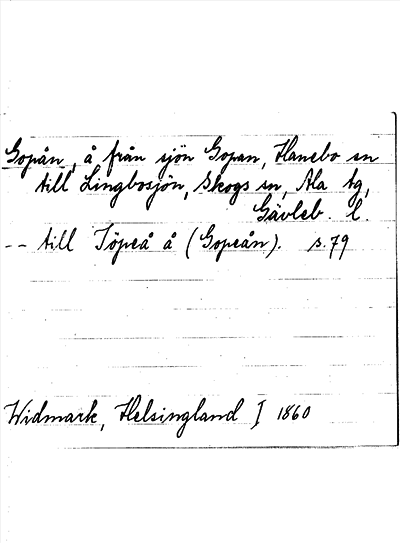 Gopån, å från sjön Gopan, Hanebo sn
till Lingbosjön, Skogs sn, Ala tg,
Gävleb. l.
-- till Töpeå å (Gopeån). s. 79
Widmark, Helsingland I 1860